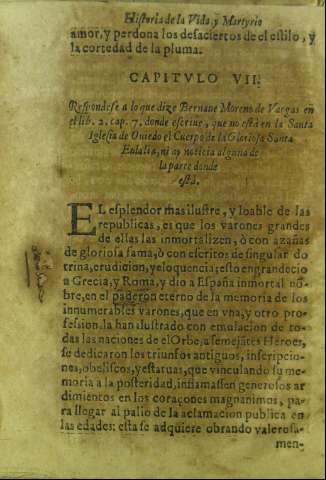 Historia de la Vida, y Martyrio
amor, y perdona los desaciertos de el estilo, y
la cortedad de la pluma.
CAPITVLO VII.
Respondese a lo que dize Bernaue Moreno de Vargas en
el lib. 2. cap. 7. donde escriue, que no està en la Santa
Iglesia de Ouiedo el Cuerpo de la Gloriosa Santa
Eulalia, ni ay noticia alguna de
la parte donde
està.
EL esplendor mas ilustre, y loable de las
republicas, es que los varones grandes
de ellas las inmortalizen, ò con azañas
de gloriosa fama, ò con escritos de singular do
trina, erudicion, y eloquencia; esto engrandeciò
a Grecia, y Roma, y dio a España inmortal nõ-
bre, en el paderon eterno de la memoria de los
innumerables varones, que en vna, y otro pro-
fession la han ilustrado con emulacion de to-
das las naciones de el Orbe; a semejãtes Heroes,
se dedicaron los triunfos antiguos, inscripcio-
nes, obeliscos, y estatuas, que vinculando su me-
moria a la posteridad, inflamassen generosos ar
dimientos en los coraçones magnanimos, pa-
ra llegar al palio de la aclamacion publica en
las edades: esta se adquiere obrando valerosa-
men-